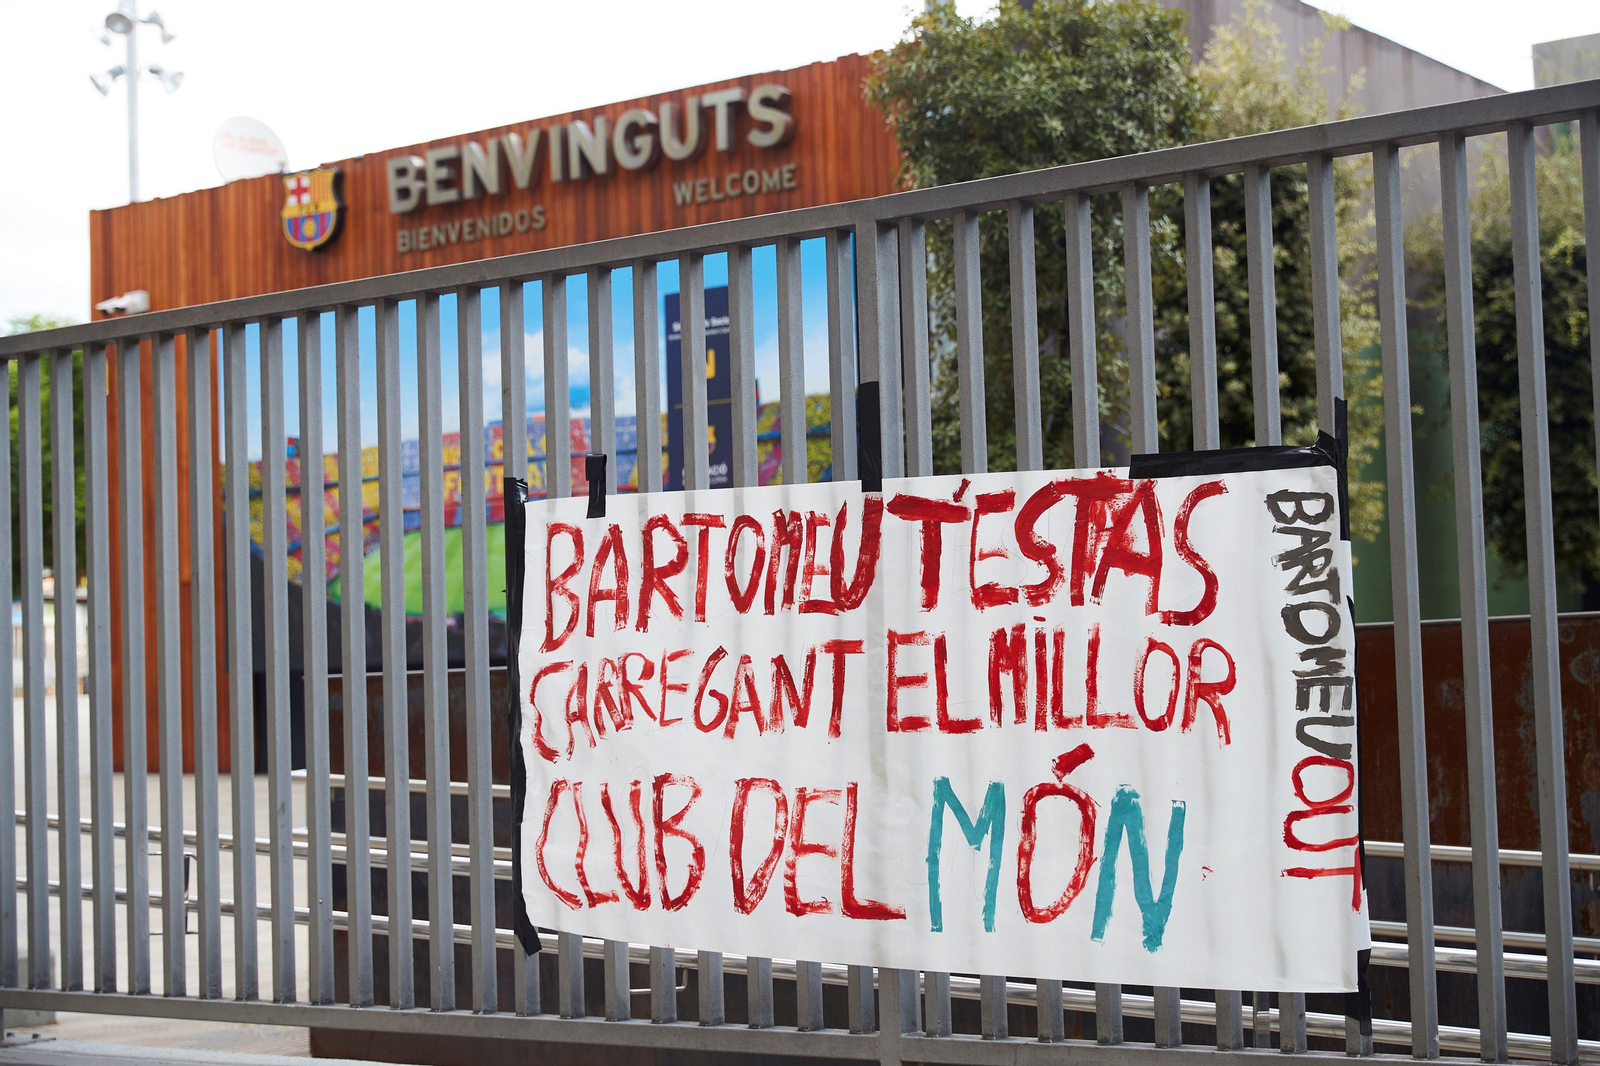 BENVINGUTS
BIENVENIDOS
WELCOME
BARTOMEU T'ESTAS
CARREGANT EL MiLLOR
CLUB DEL MÓN
BARTOMEU OUT